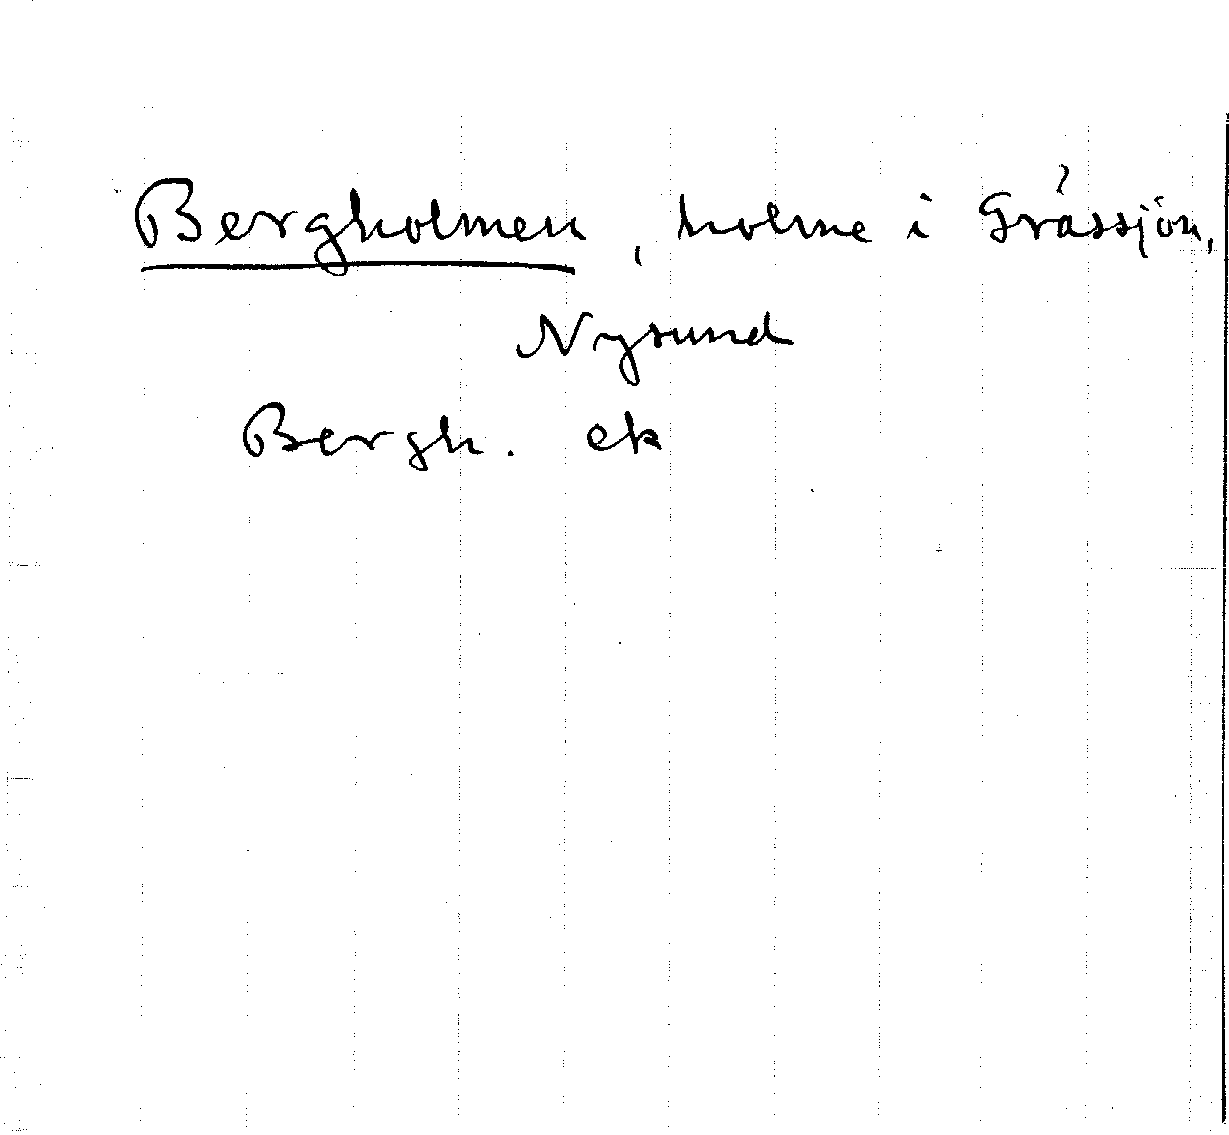 Bergholmen, holme i Gråssjön,
Nysund
Bergh. ek